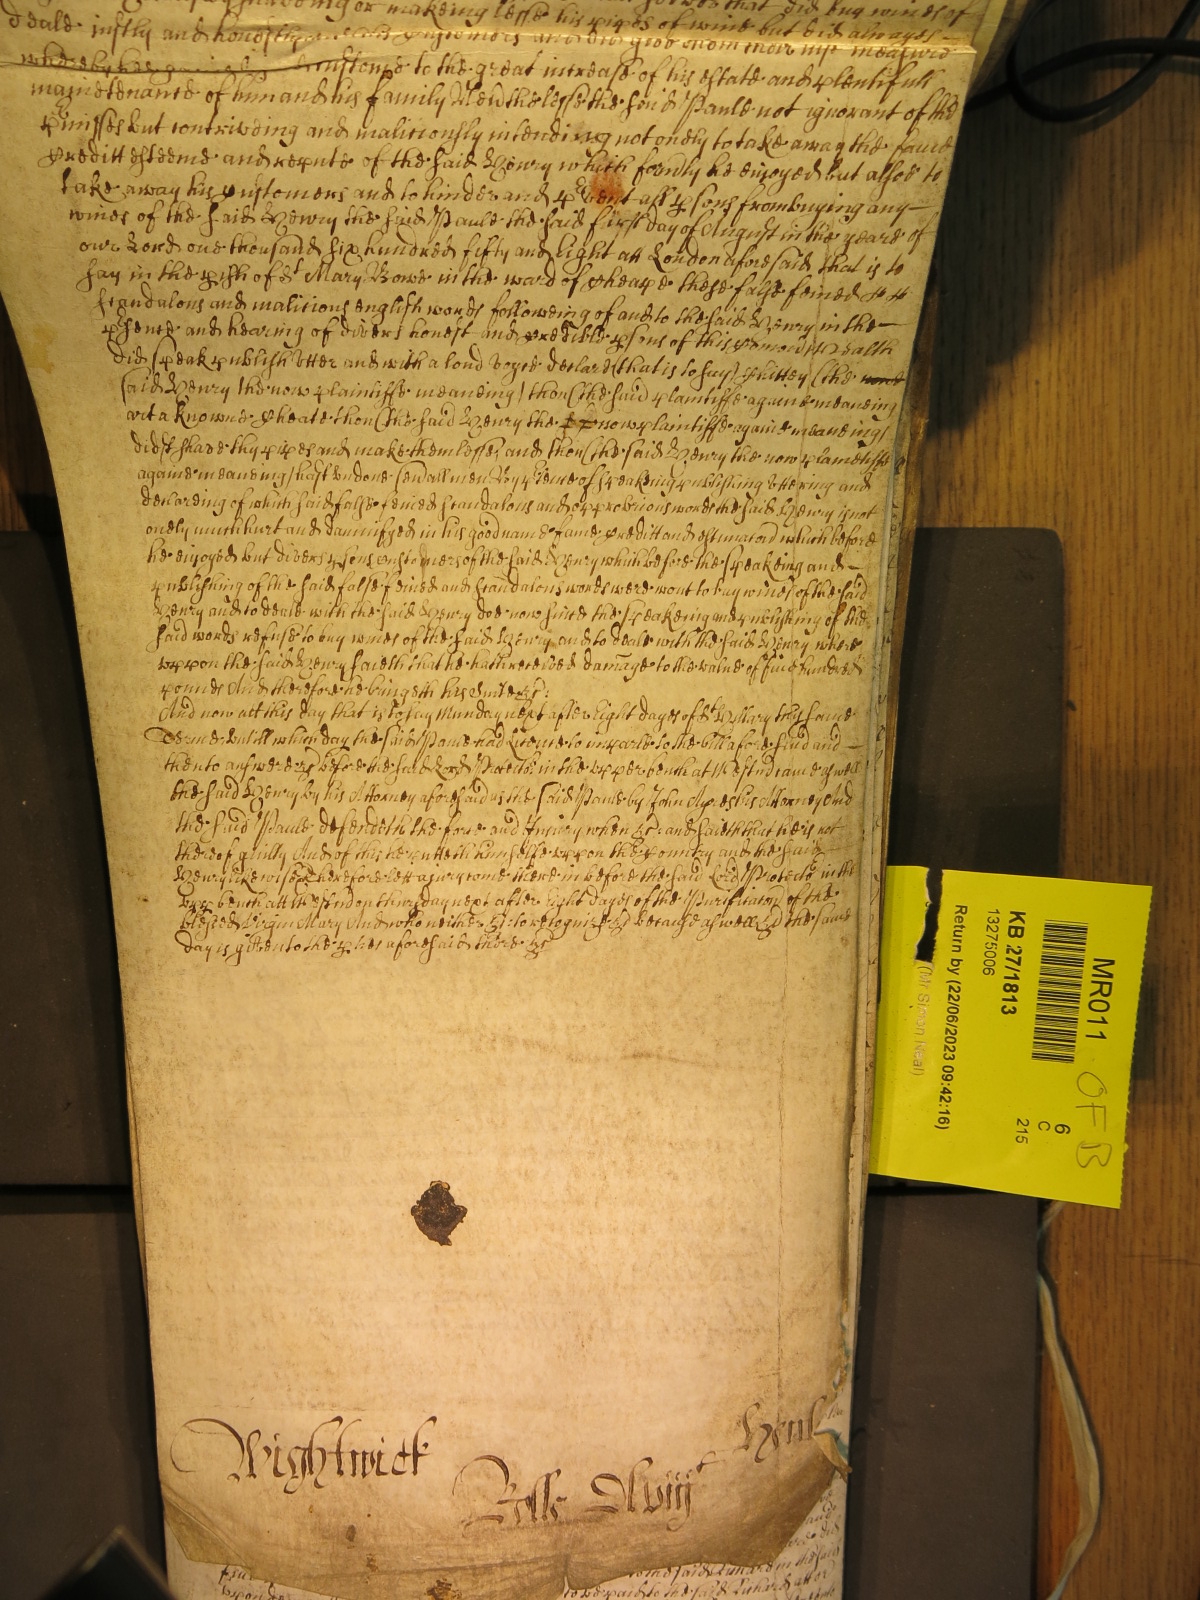 shaveing or makeing lesse his pipes of wine but did alwayes
deale iustly and honestly customers and did give them their iust measure
whereby hee customs to the great increase of his estate and plentifull
maynetenance of him and his family Neverthelesse the said Paule not ignorant of the
pmisses but contriveing and maliciously intending not onely to take away the fame
Creditt esteeme and repute of the said Henry which formly he enioyed but alsoe to
take away his Customers and to hinder and pvent all psons from buying any
wines of the said Henry the said Paule the said first day of August in the yeare of
our Lord one thousand six hundred fifty and Eight att London aforesaid that is to
say in the pish of St Mary Bowe in the ward of Cheape these false feined
scandalous and malicious english words following of and to the said Henry in the
psence and hearing of divers honest and Credible psons of this Comon wealth
did speak publish utter and with a loud voyce declare (that is to say) (the
said Henry the now plaintiffe meaneing) thou (the said plaintiffe againe meaneing
art a knowne Cheate thou (the said Henry the now plaintiffe againe meaneing)
didst shave thy pipes and make them lesse, and thou (the said Henry the now plaintiffe
againe meaneing) hast undone severall men By psence of speakeing publishing uttering and
declareing of which said false feined scandalous and opprobrious words the said Henry is not
onely much hurt and damnifyed in his good name fame Creditt and estimacon which before
he enioyed but divers psons customers of the said Henry which before the speakeing and
publishing of the said false feined and scandalous words were wont to buy wines of the said
Henry and to deale with the said Henry doe now since the speakeing and publishing of the
said words refuse to buy wines of the said Henry and to deale with the said Henry where
uppon the said Henry saieth that he hath received damage to the value of five hundred
pounds And therefore he bringeth his suite &c:
And now att this day that is to say Munday next after Eight dayes of St Hillary this same
Terme untill which day the said Paule had Licence to imparle to the bill aforesaid and
then to answere &c before the said Lord Protector in the upper bench at Westm came aswell
the said Henry by his Attorney aforesaid as the said Paule by John his Attorney And
the said Paule defendeth the force and Iniury when &c and saieth that he is not
thereof guilty And of this he putteth himselfe uppon the Country and the said
Henry likewise therefore lett a iury come therein before the said Lord Protector in the
upp bench att Westm on thursday next after Eight dayes of the Purificacon of the
blessed Virgin Mary And who neither &c to recognize &c because aswell &c the same
day is given to the pties aforesaid there &c
Wightwick
Henl
Rolle
MR011
OF B
KB 27/1813
13275006
Return by (22/06/2023 09:42:16)
(Mr Simon Neal)
6
C
215